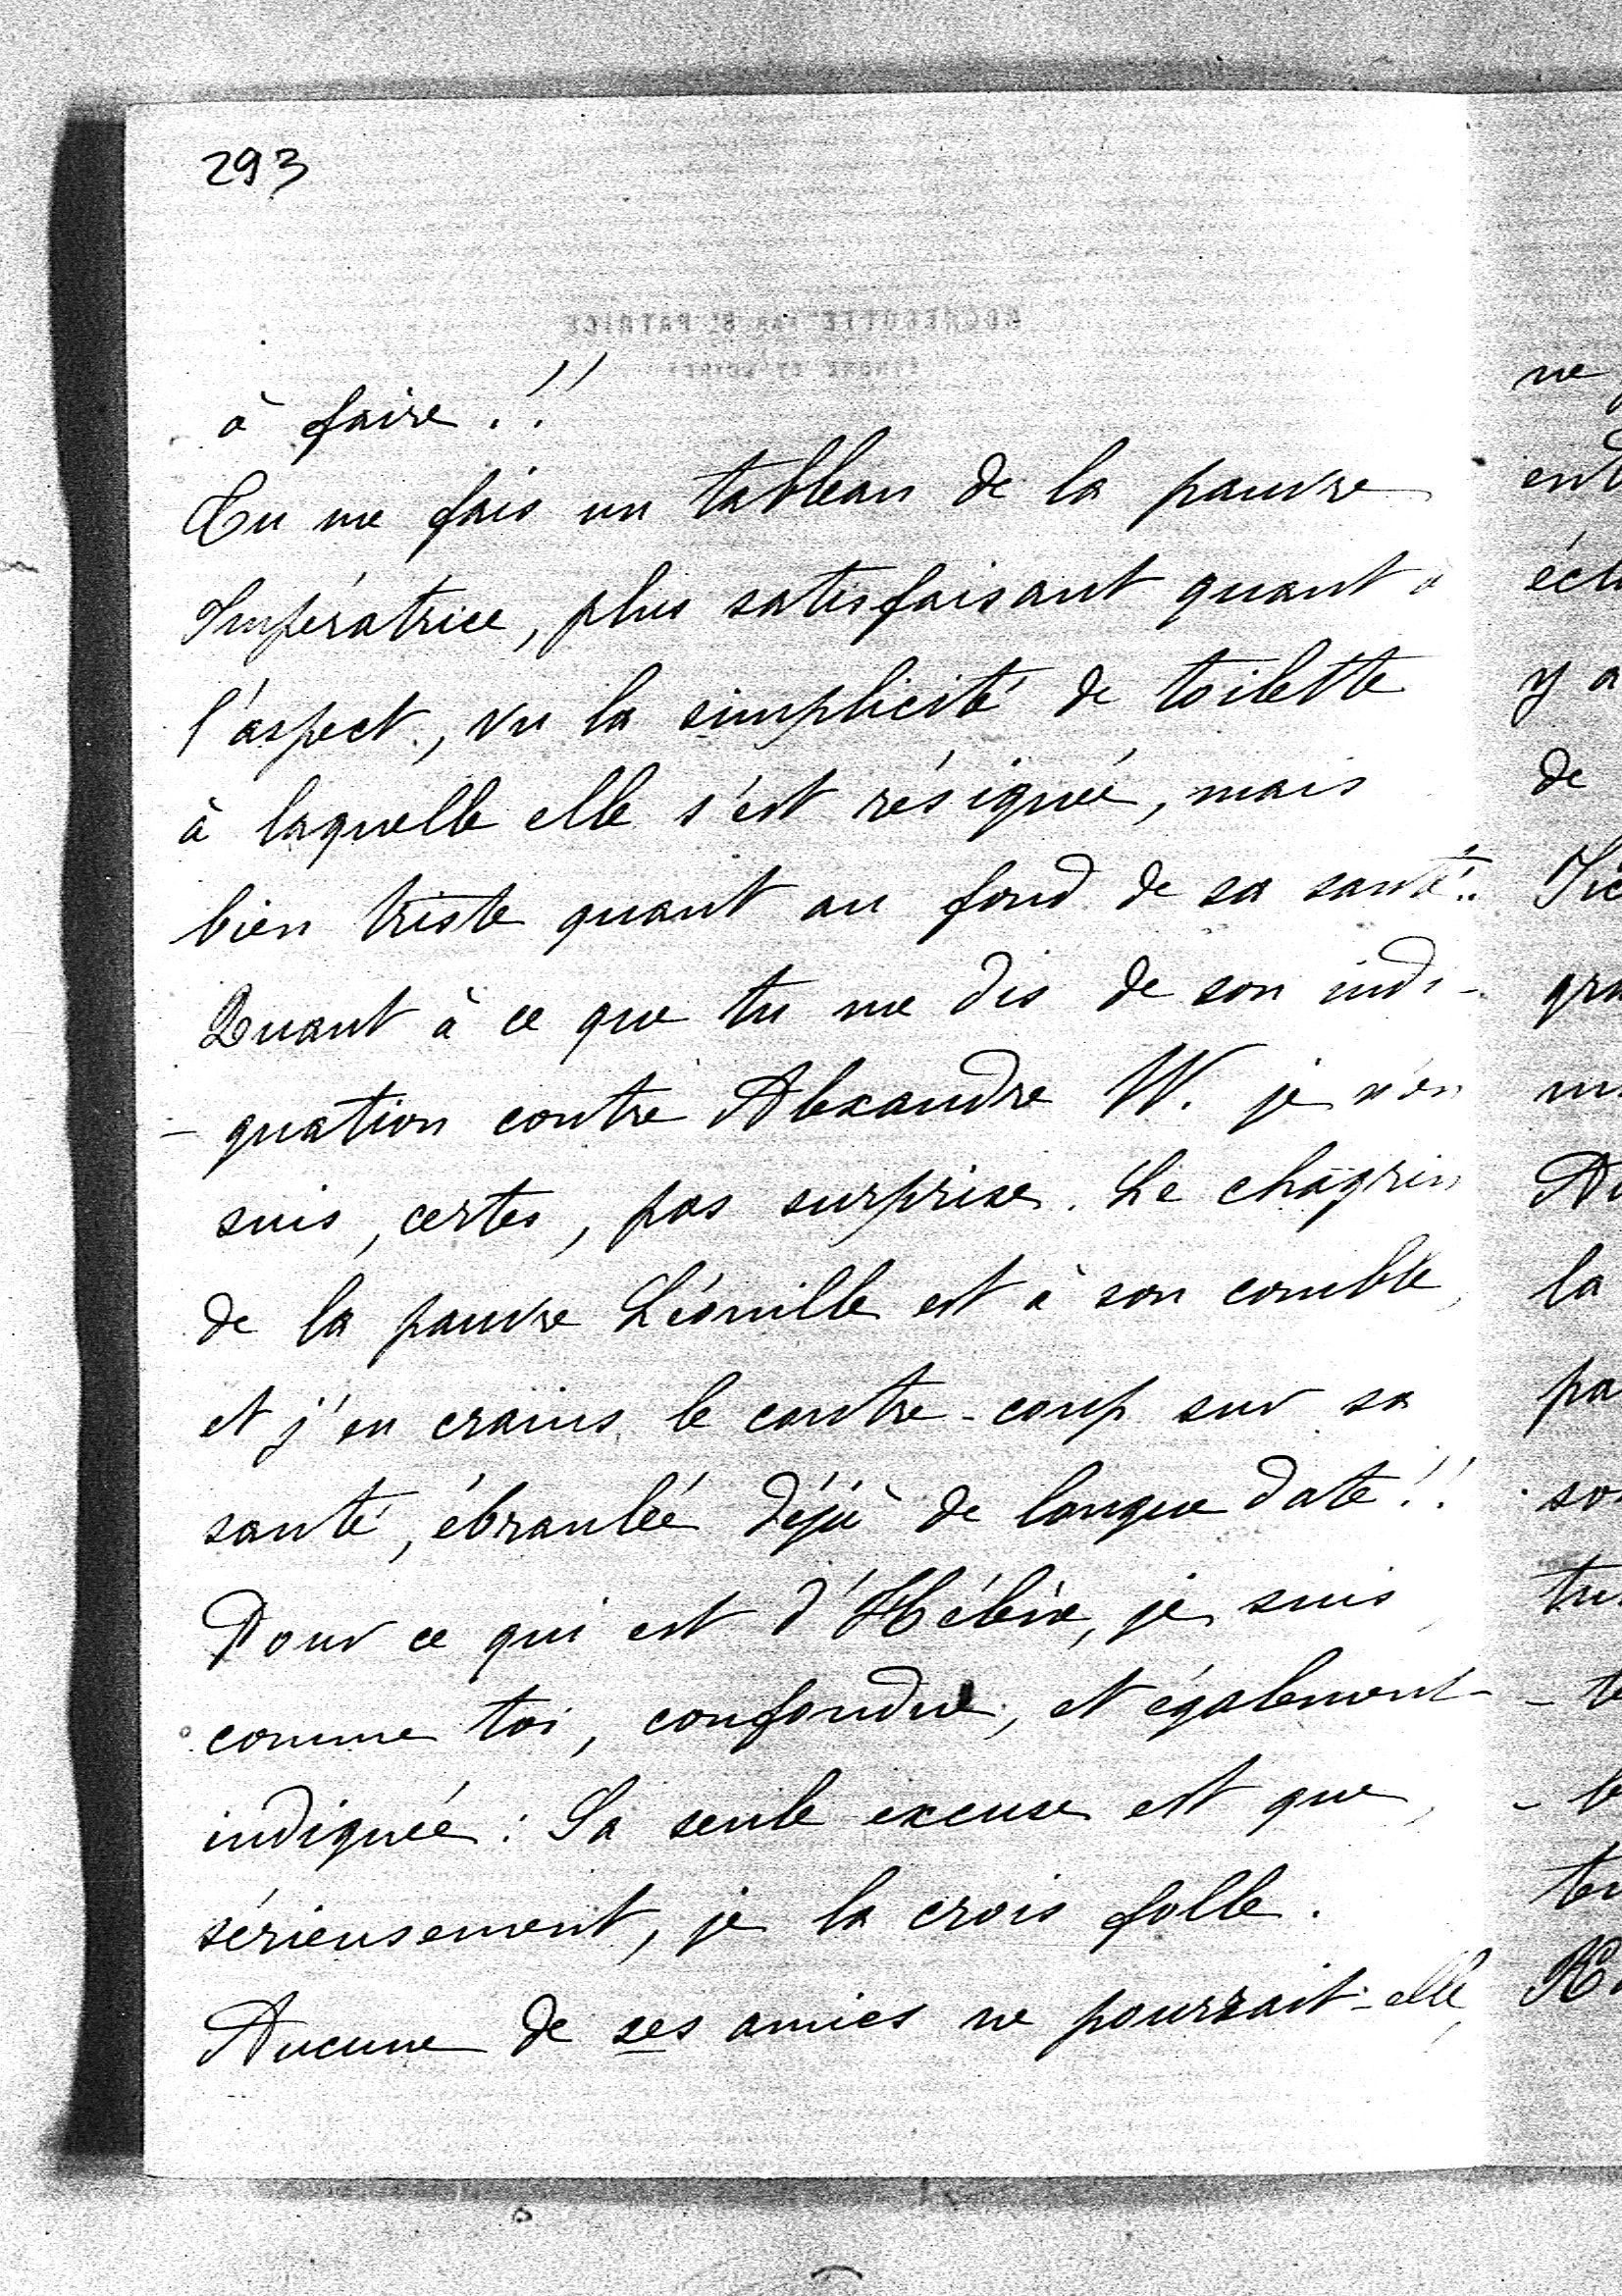 293
à faire !!
Tu me fais un tableau de la pauvre
Impératrice, plus satisfaisant quant à
l'aspect, vu la simplicité de toilette
à laquelle elle s'est résignée, mais
bien triste quant au fond de sa santé..
Quant à ce que tu me dis de son indi-
-gnation contre Alexandre W. je n'en
suis, certes, pas surprise. Le chagrin
de la pauvre Léonille est à son comble,
et j'en crains le contre-coup sur sa
santé, ébranlée déjà de longue date !!
Pour ce qui est d'Hélène, je suis,
comme toi, confondue, et également
indignée : Sa seule excuse est que,
sérieusement, je la crois folle.
Aucune de ses amies ne pourrait-elle,